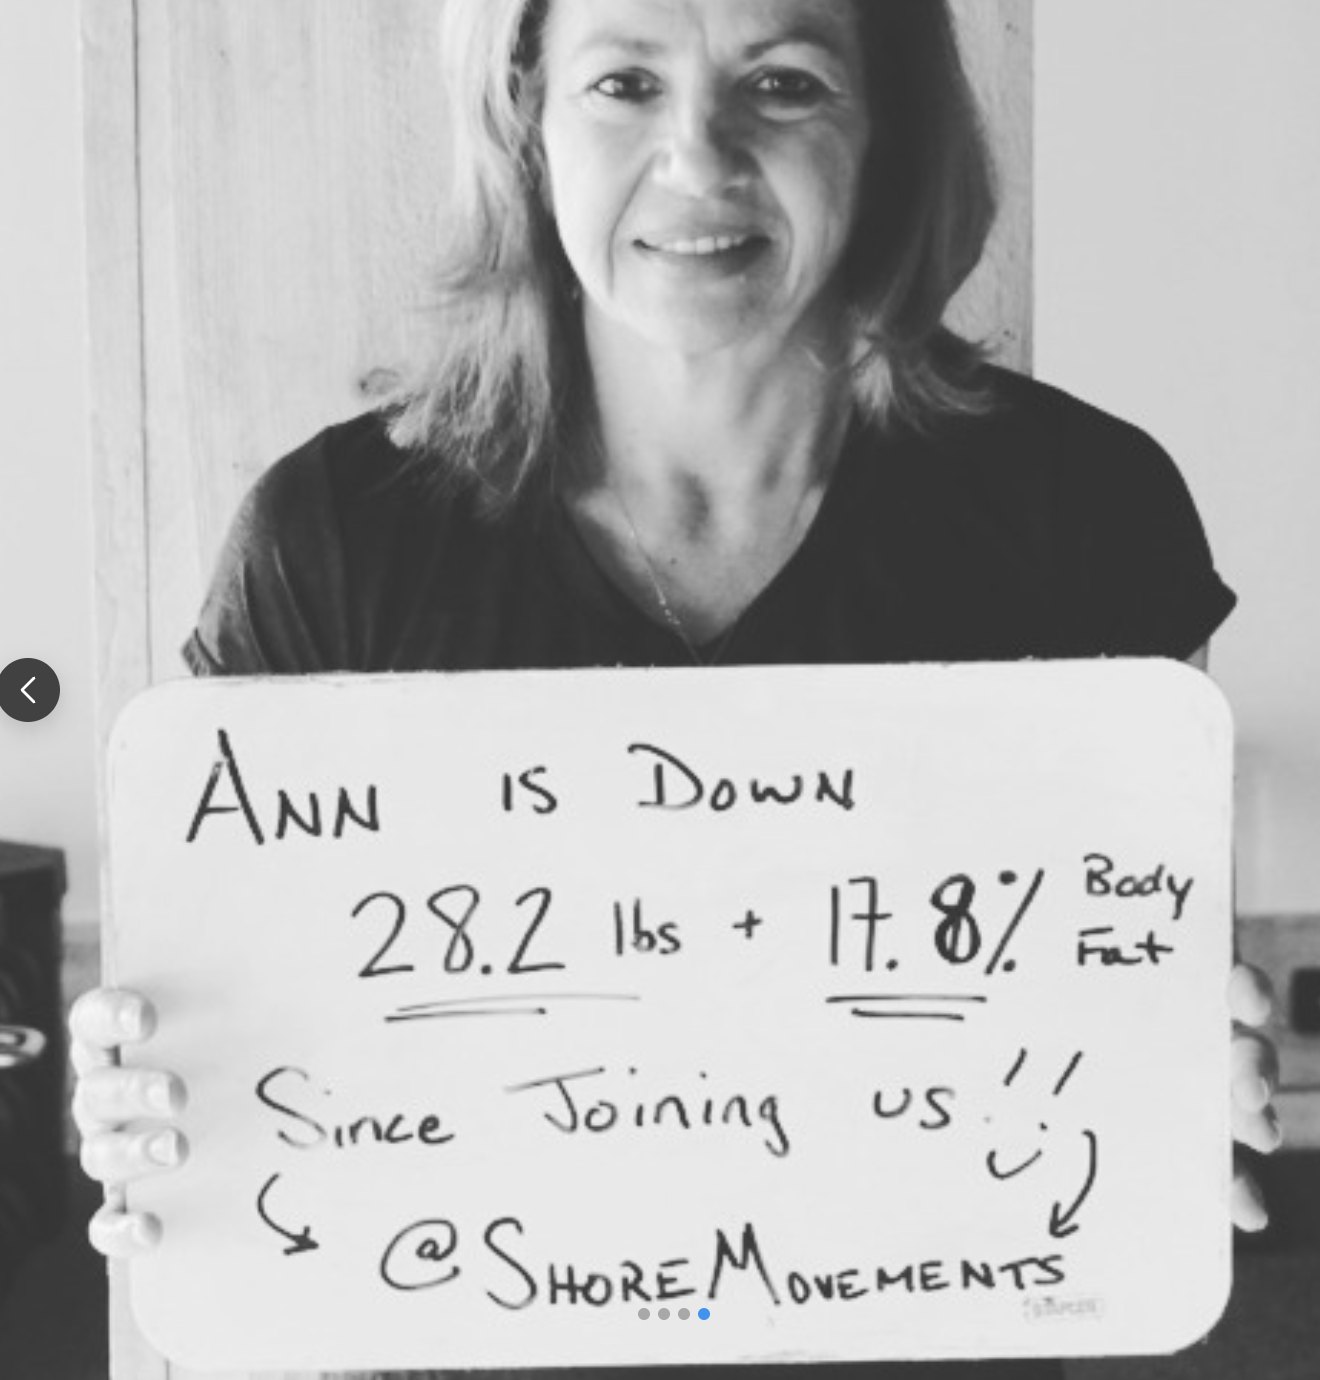 ANN IS DOWN
28.2 lbs + 17.8% Body Fat
Since Joining us!!
@SHOREMOVEMENTS
STAPLES